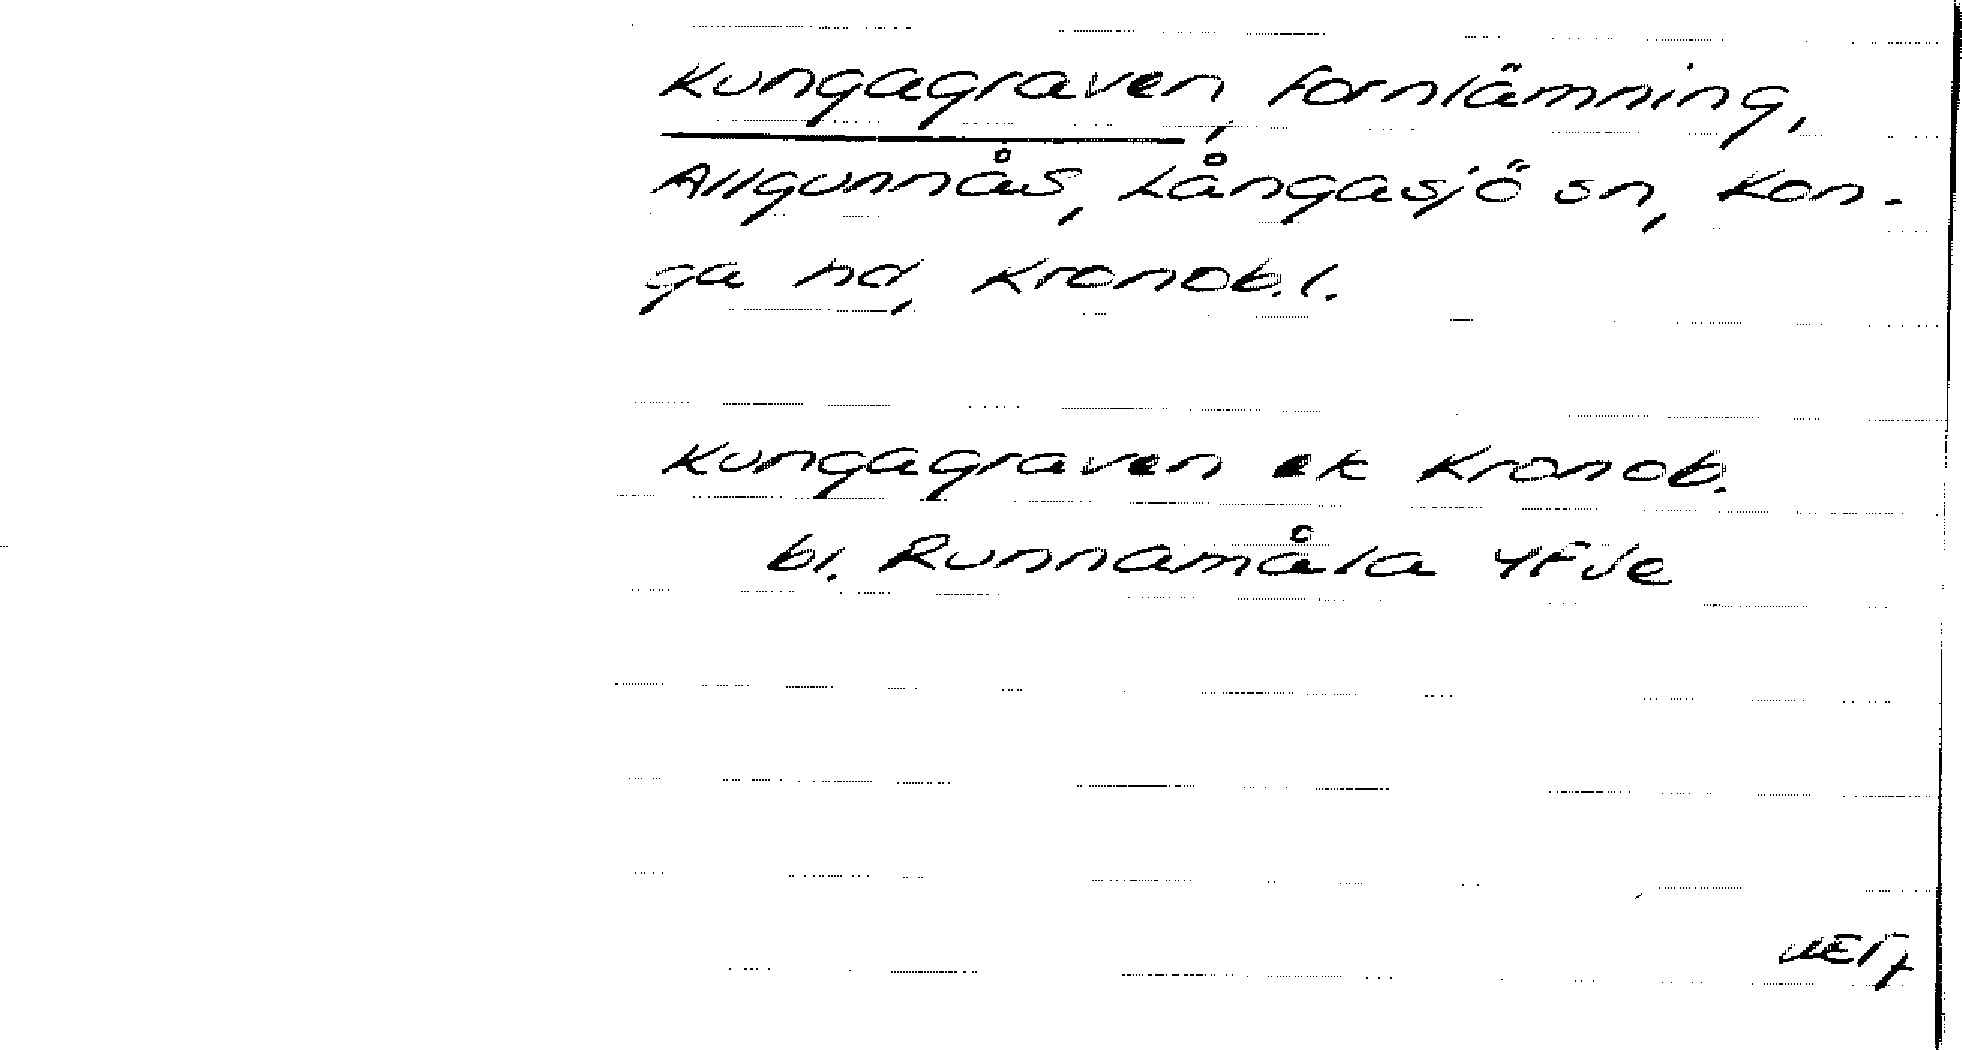 Kungagraven, fornlämning,
Allgunnås, Långasjö sn, Kon-
ga hd, Kronob.l.
Kungagraven ek Kronob.
bl. Runnamåla 4F Je